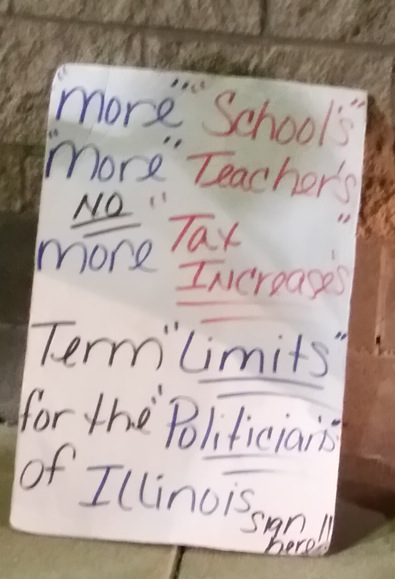 "more" "School's"
"more" Teacher's
NO "
more Tax "
Increase's
Term "Limits"
for the "Politician's"
of Illinois
sign !!
here!!